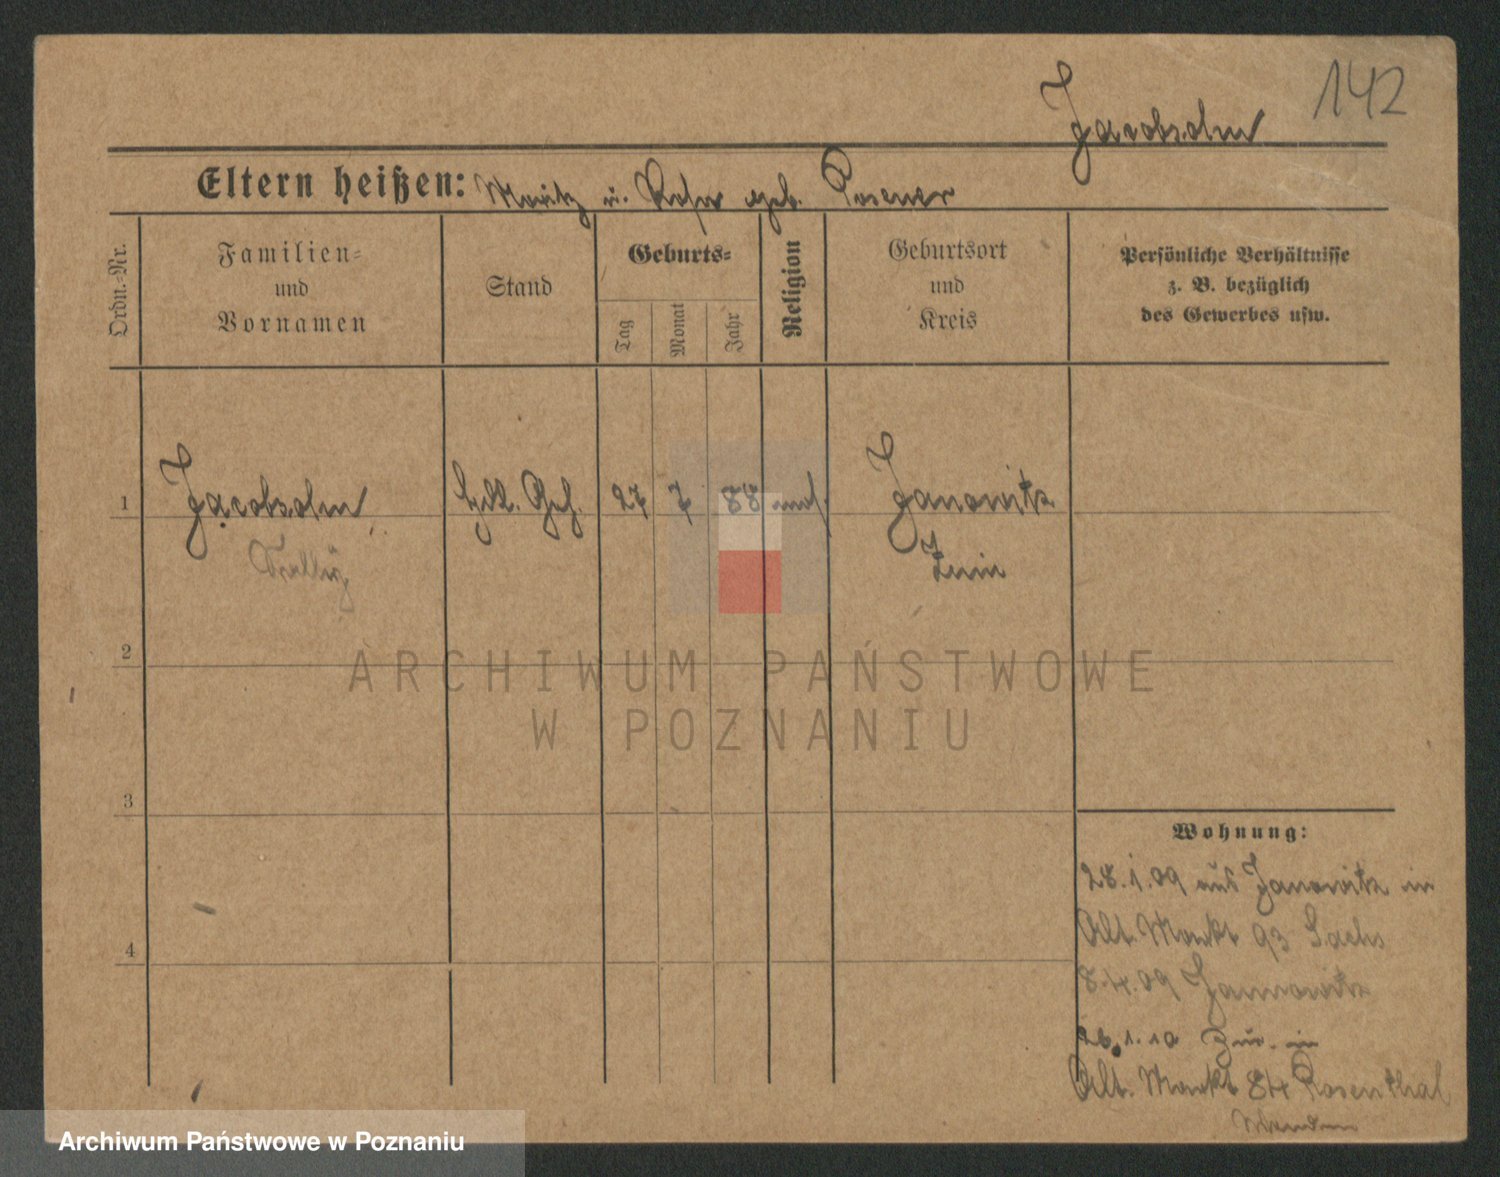 142
Jacobsohn
Eltern heißen: Moritz u. Rosa geb. Posener
Ordn.-Nr.
Familien-
und
Vornamen
Stand
Geburts-
Tag
Monat
Jahr
Religion
Geburtsort
und
Kreis
Persönliche Verhältnisse
z. B. bezüglich
des Gewerbes usw.
1 Jacobsohn Hdl. Geh. 27 7 88 mos. Janowitz
Znin
2
ARCHIWUM PAŃSTWOWE
W POZNANIU
3
Wohnung:
28.1.09 aus Janowitz in
Alt. Markt 93 Sachs
4
8.4.09 Janowitz
26.1.10 Zur. in
Alt. Markt 84 Rosenthal
Archiwum Państwowe w Poznaniu